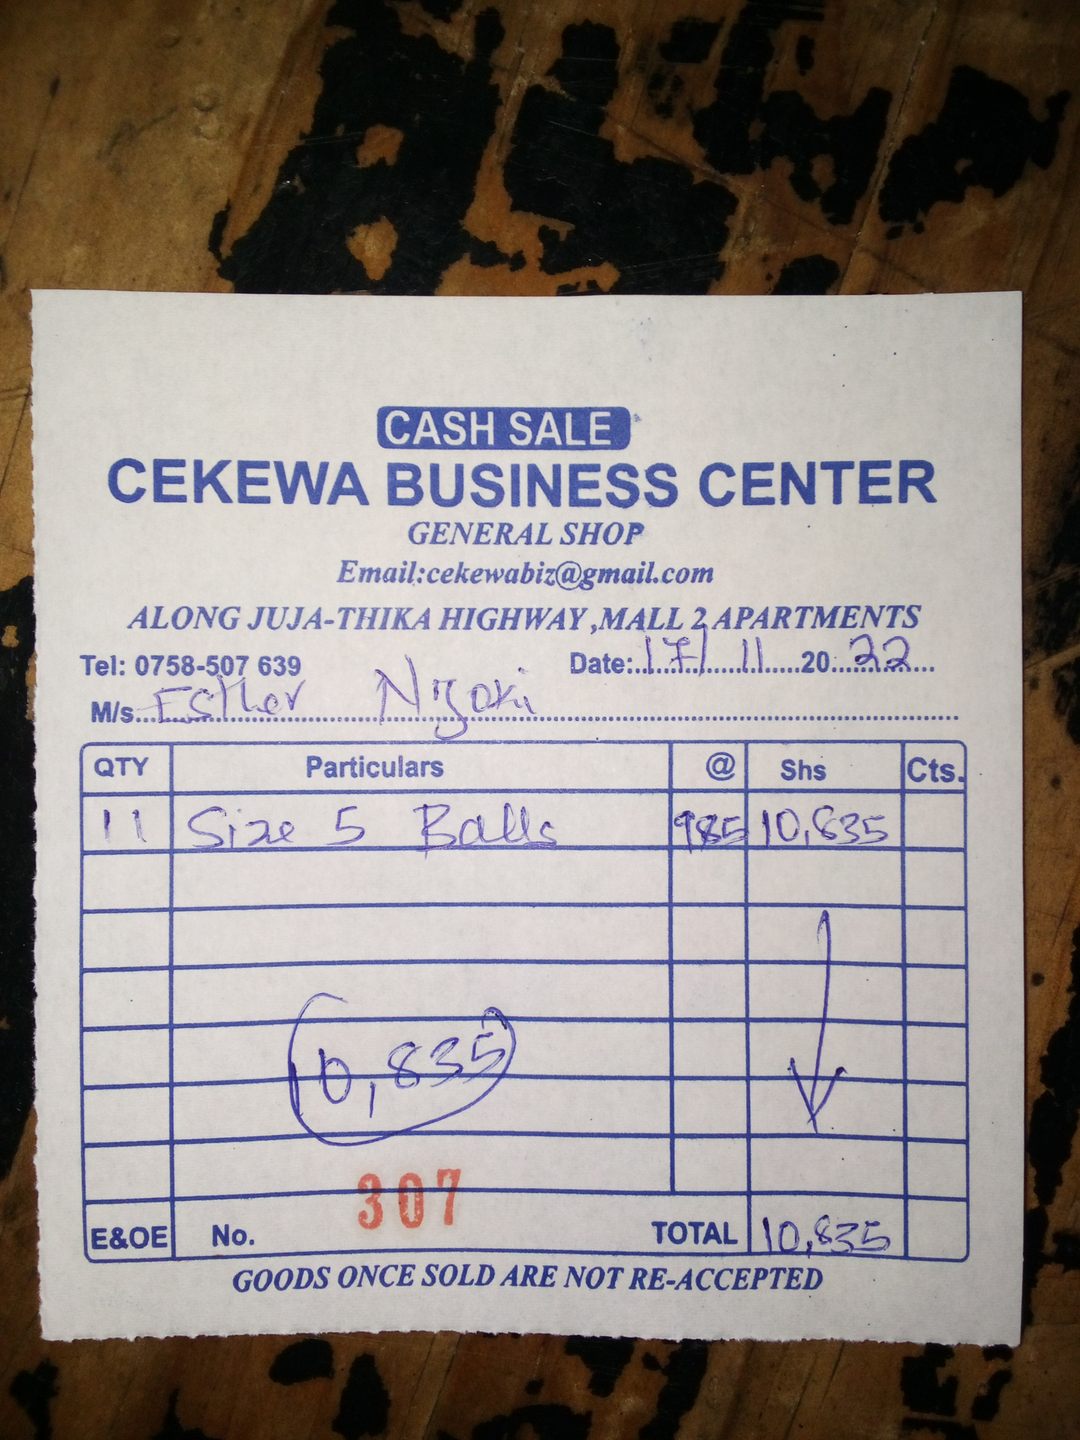 CASH SALE
CEKEWA BUSINESS CENTER
GENERAL SHOP
Email:cekewabiz@gmail.com
ALONG JUJA-THIKA HIGHWAY ,MALL 2 APARTMENTS
Tel: 0758-507 639 Date:..17/..11..20..22..
M/s...Esther Njoki
QTY Particulars @ Shs Cts.
11 Size 5 Balls 985 10,835
10,835
307
E&OE No. TOTAL 10,835
GOODS ONCE SOLD ARE NOT RE-ACCEPTED